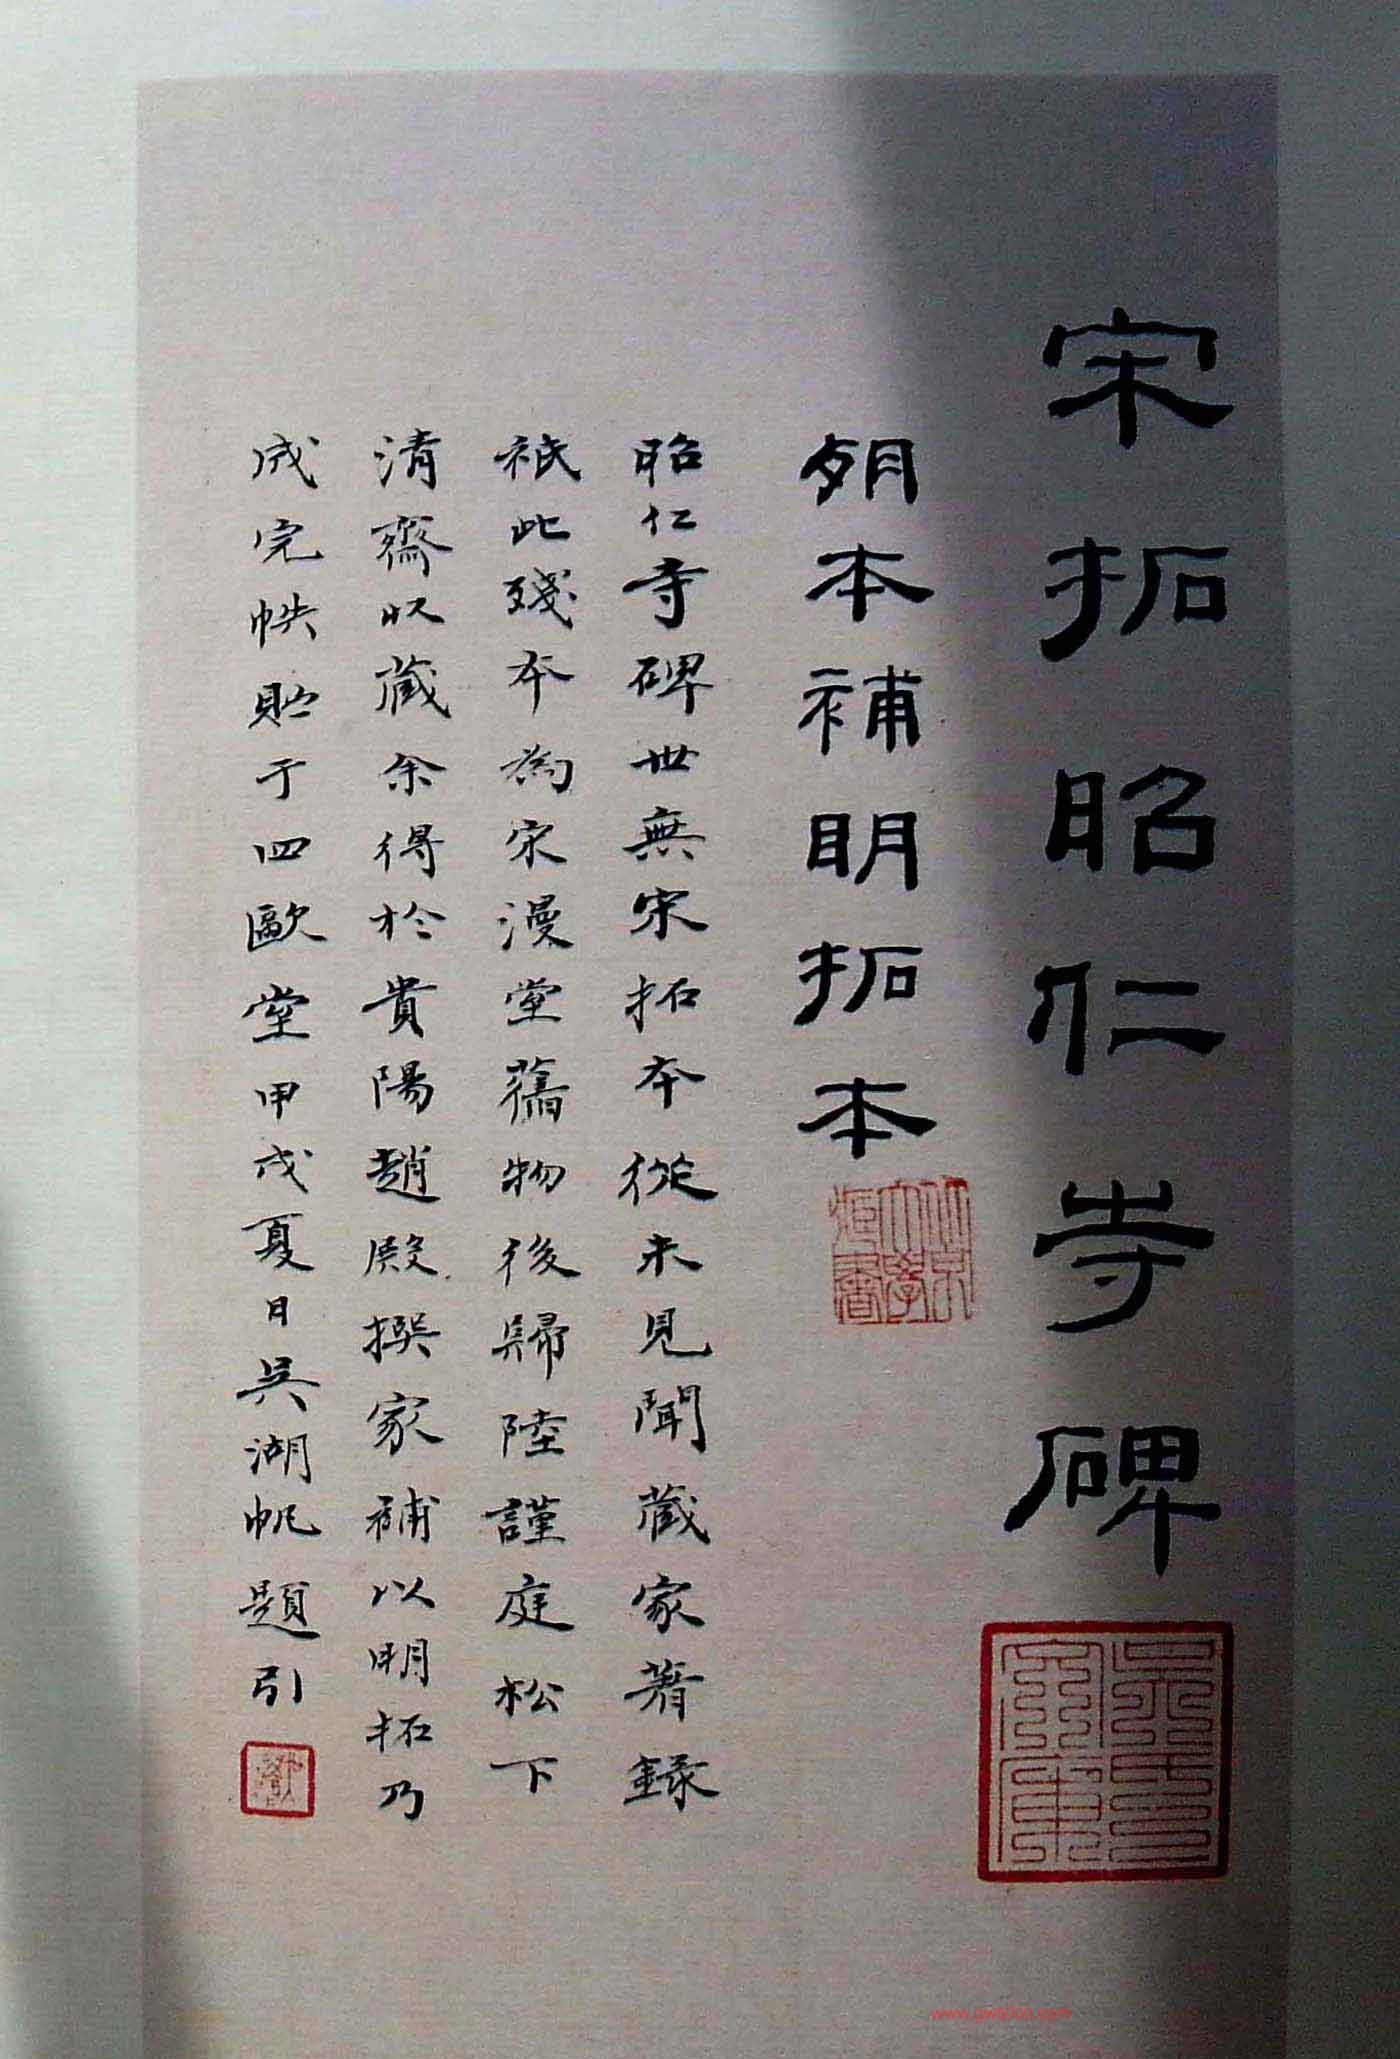 宋拓昭仁寺碑
本補明拓本
昭仁寺碑世無宋拓本從未見聞藏家著錄
祇此殘本為宋漫堂舊物後歸陸謹庭松下
清齋收藏余得於貴陽趙殿撰家補以明拓乃
成完帙貯于四歐堂甲戌夏日吳湖帆題引
北京
大學